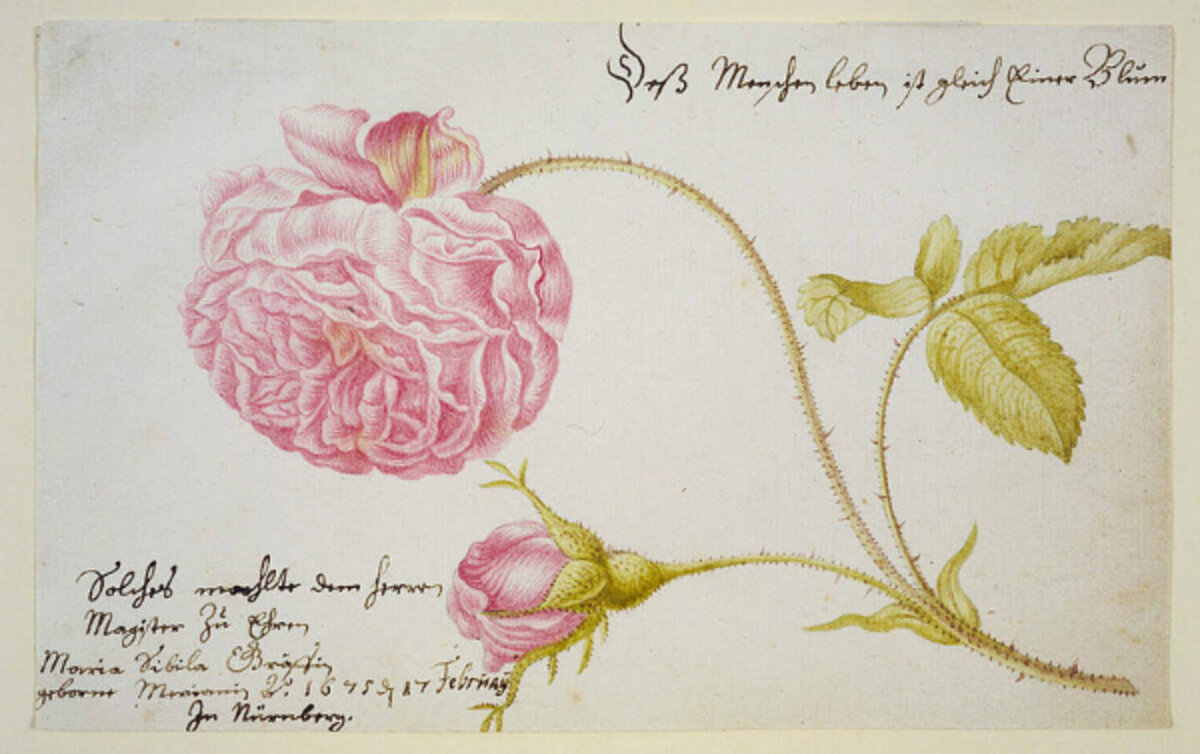 Deß Menschen leben ist gleich Einer Blum
Solches mahlte dem Herren
Magister Zu Ehren
Maria Sibila Gräffin
geborne Merianin A: 1675 d 17 February
In Nürnberg.